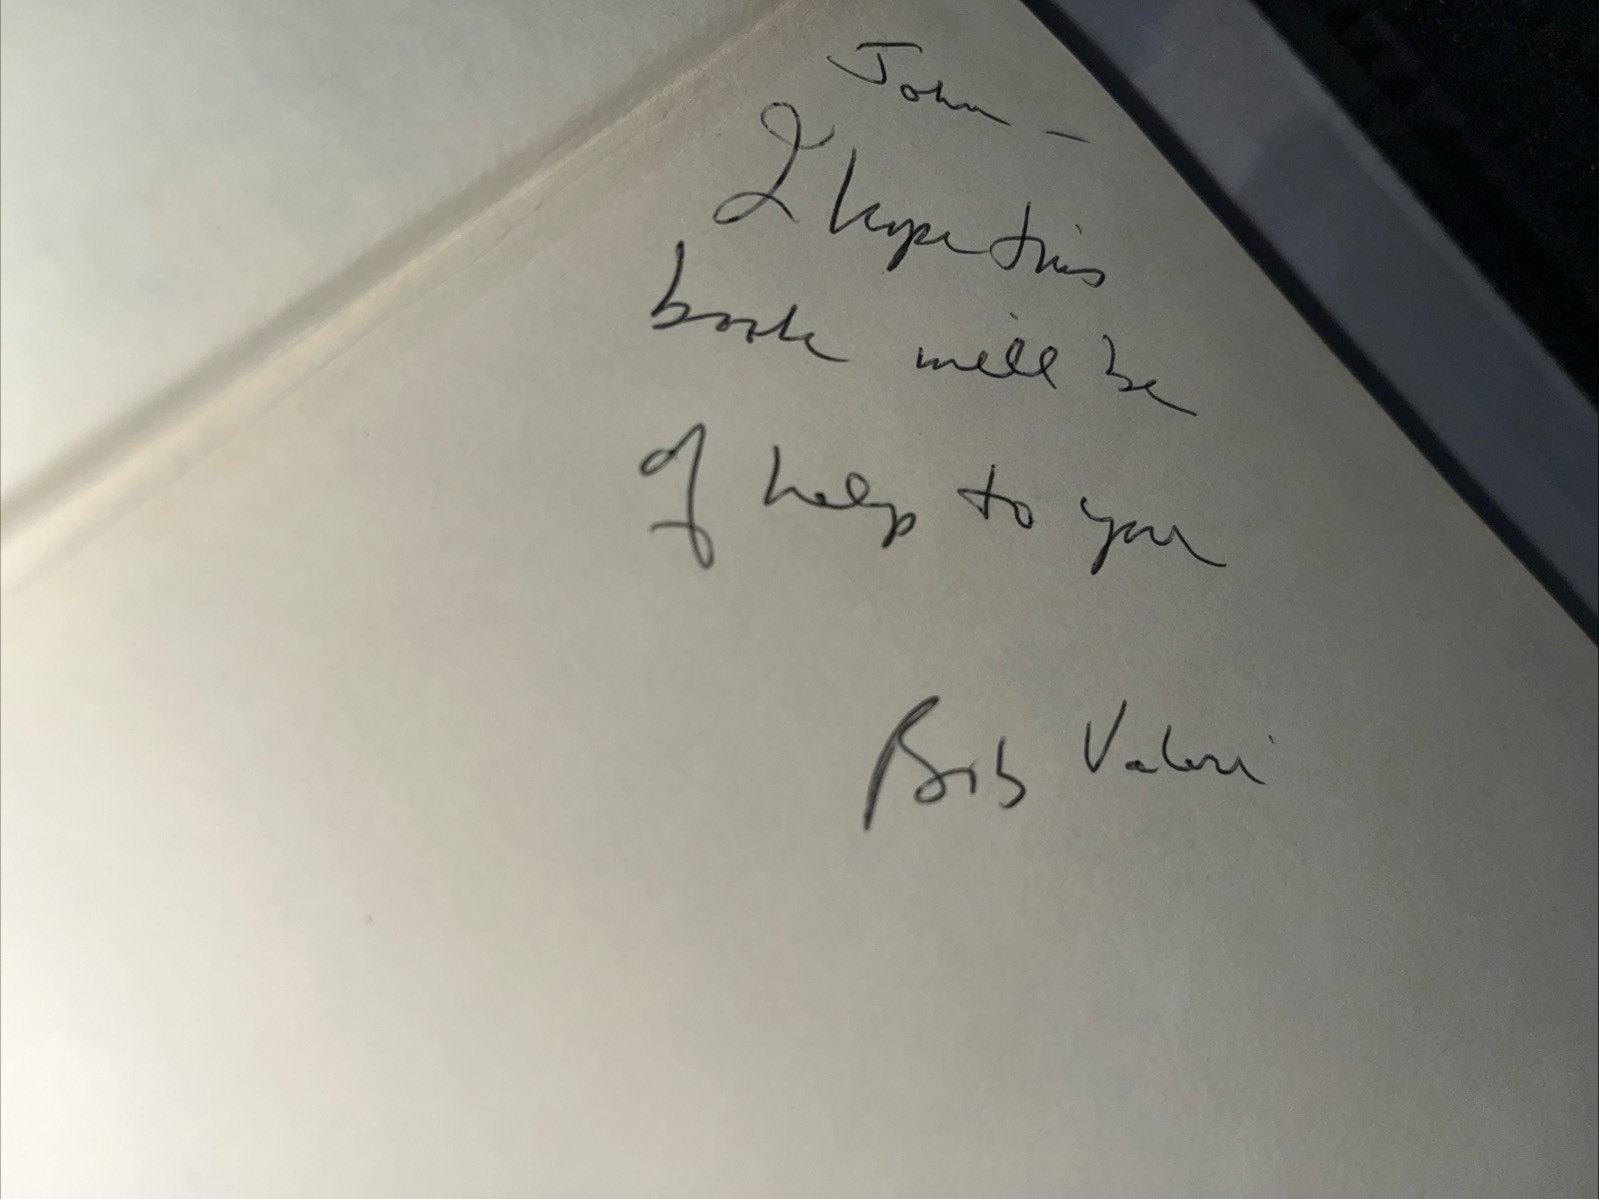 John –
I hope this
book will be
of help to you
Bob Valeri